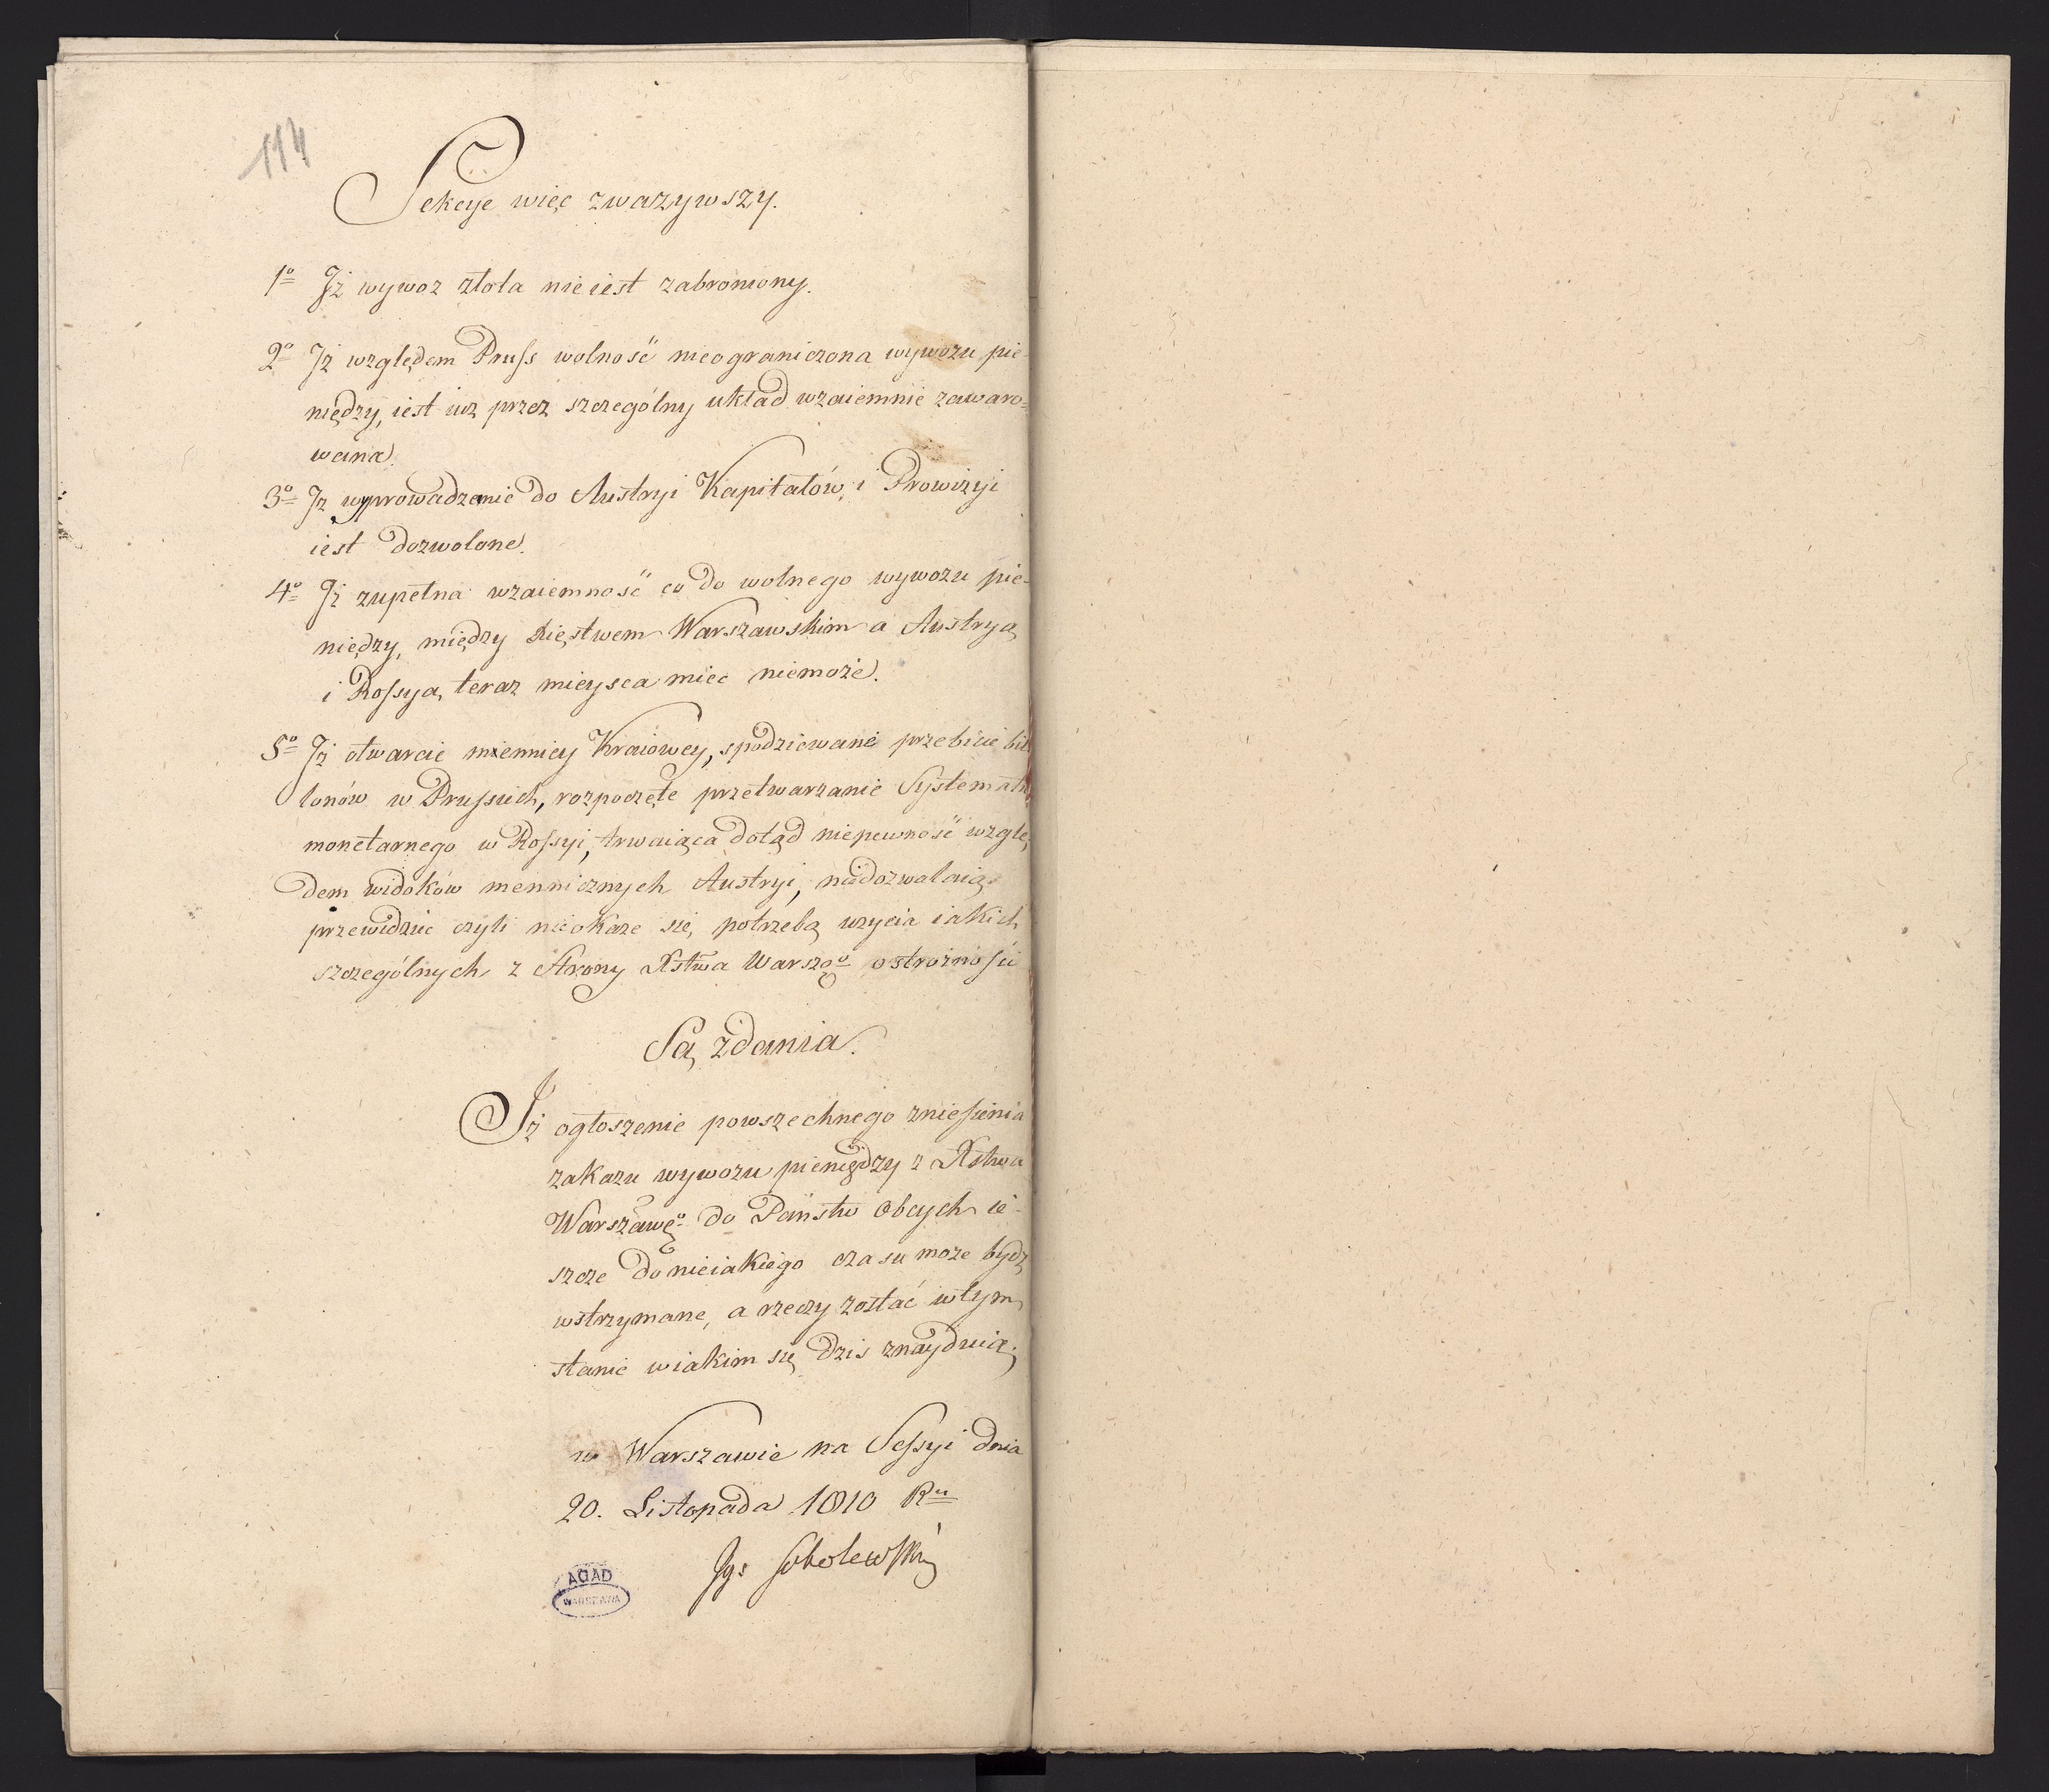 114
Sekcye więc zwazywszy.
1o Jż wywoz złota nie iest zabroniony.
2o Jż względem Pruss wolność nieograniczona wywozu pie-
niędzy, iest iuz przez szczególny układ wzaiemnie zawaro-
wana.
3o Jz wyprowadzenie do Austryi Kapitałów, i Prowizyi
iest dozwolone.
4o Jż zupełna wzaiemność co do wolnego wywozu pie-
niędzy, między Xięstwem Warszawskim a Austryą
i Rossyą, teraz mieysca miec niemoże.
5o Jż otwarcie mennicy Kraiowey, spodziewane przebicie bil
lonów w Prusiech, rozpoczęte przetwarzanie Systematu
monetarnego w Rossyi, trwaiąca dotąd niepewność wzglę
dem widoków mennicznych Austryi, niedozwalaią
przewidzić czyli nieokaze się, potrzeba uzycia iakich
szczególnych z Strony Xstwa Warszgo ostrożności
Są zdania.
Jż ogłoszenie powszechnego zniesienia
zakazu wywozu pieniędzy z Xstwa
Warszawgo do Państw Obcych ie-
szcze do nieiakiego czasu moze bydz
wstrzymane, a rzeczy zostać wtym
stanie wiakim się dzis znayduią.
w Warszawie na Sessyi dnia
20. Listopada 1810 Ru
Jgs Sobolewski
AGAD
WARSZAWA